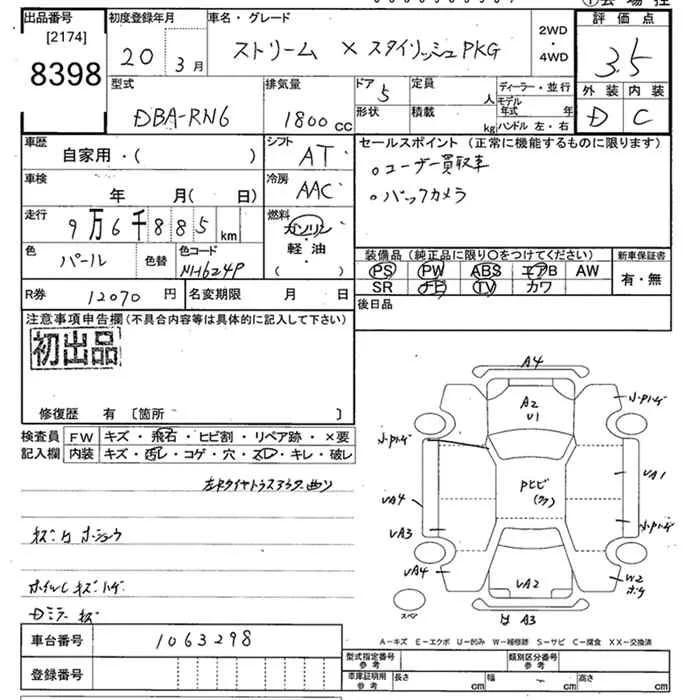 出品番号 初度登録年月 車名・グレード 2WD・4WD 評価点
[2174]
8398
20 3月 ストリーム X スタイリッシュPKG
3.5
型式 排気量 ドア 定員 人 ディーラー・並行
DBA-RN6 1800cc 5
形状 積載 kg モデル年式 年
ハンドル 左・右
外装 内装
D C
車歴 シフト セールスポイント (正常に機能するものに限ります)
自家用・( ) AT
。ユーザー買取車
。バックカメラ
車検 年 月( 日) 冷房 AAC
走行 9万6千885km 燃料 ガソリン・軽油・( )
色 パール 色替 色コード NH624P
装備品 (純正品に限り〇をつけてください) 新車保証書
PS PW ABS エアB AW 有・無
SR ナビ TV カワ
R券 12070円 名変期限 月 日
後日品
注意事項申告欄 (不具合内容等は具体的に記入して下さい)
初出品
修復歴 有 [箇所 ]
検査員 FW キズ・飛石・ヒビ割・リペア跡・×要
記入欄 内装 キズ・汚レ・コゲ・穴・スレ・キレ・破レ
キズヒホショウ
ホイルCキズハゲ
Dミラーキズ
A4
A2
U1
小Pハゲ
小Pハゲ
Pヒビ
VA1
VA4
VA3
小Pハゲ
VA4
VA2
W2
スペア
A3
A-キズ E-エクボ U-凹み W-補修跡 S-サビ C-腐食 XX-交換済
車台番号 1063298
型式指定番号 参考 類別区分番号 参考
登録番号
車庫証明用 参考 長さ cm 幅 cm 高さ cm